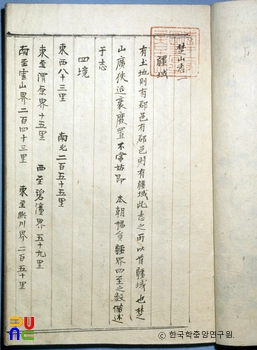 楚山志
疆域
有土地則有郡邑有郡邑則有疆域此志之所以首疆域也楚
山廣狹延袤廢置不常姑節 本朝楊多疆界四至之數備述
于志
四境
東西八十三里 南北二百五十五里
東至渭原界十五里 西至碧潼界五十九里
南至雲山界二百四十三里 東至熙川界二百五十里
ⓒ 한국학중앙연구원